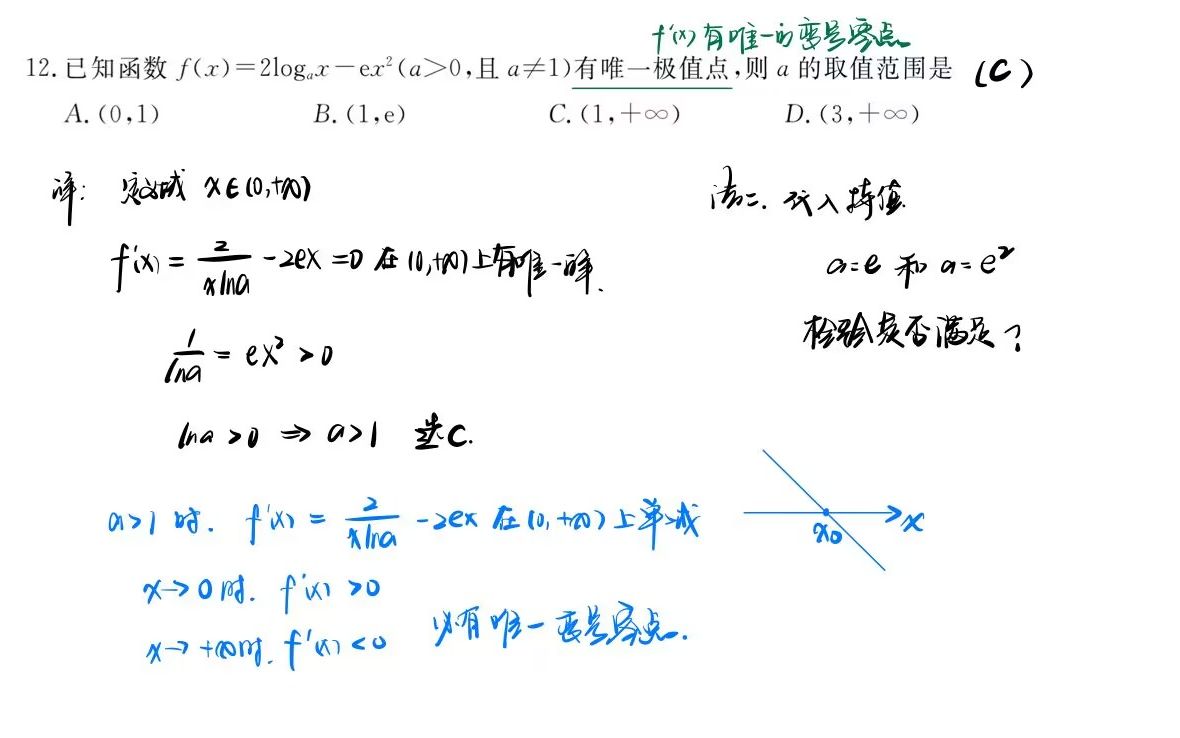 f'(x)有唯一的变号零点
12.已知函数 f(x)=2logₐx-ex²(a>0,且 a≠1)有唯一极值点,则 a 的取值范围是 (C)
A.(0,1) B.(1,e) C.(1,+∞) D.(3,+∞)
译: 定义域 x∈(0,+∞)
f'(x)=2/(xlna)-2ex=0 在(0,+∞)上有唯一解.
1/lna=ex²>0
lna>0 ⇒ a>1 选C.
法二. 代入特值.
a=e 和 a=e²
检验是否满足?
a>1 时. f'(x)=2/(xlna)-2ex 在(0,+∞)上单减
x→0时. f'(x)>0
x→+∞时. f'(x)<0
必有唯一变号零点.
x₀ x